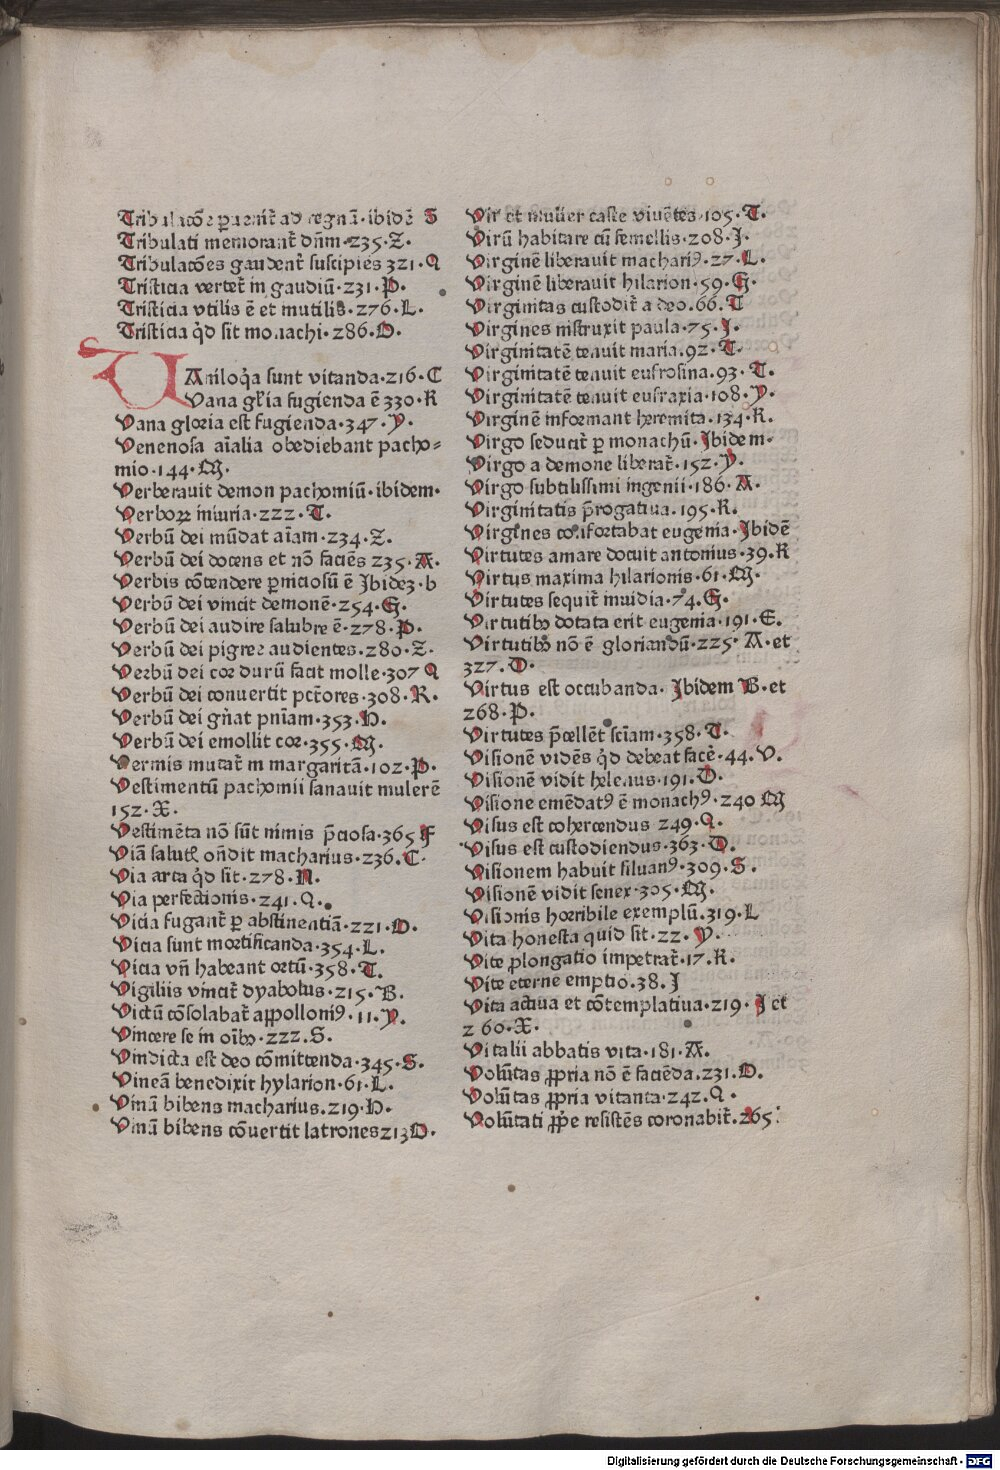 Tribulacōe ꝑuenit᷑ ad regnā·ibidē S
Tribulati memorant᷑ dn̄m·235·Z.
Tribulacōes gaudent᷑ suscipies 321·Q
Tristicia vertet᷑ in gaudiū·231·P.
Tristicia vtilis ē et inutilis·276·L.
Tristicia qd̄ sit monachi·286·O.
VAniloq̄a sunt vitanda·216·C
Vana gl̄ia fugienda ē 330·R
Vana gloria est fugienda·347·Y.
Venenosa aīalia obediebant pacho⸗
mio·144·M.
Verberauit demon pachomiū·ibidem·
Verboꝝ iniuria·222·T.
Verbū dei mūdat aīam·234·Z.
Verbū dei docens et nō faciēs 235·A.
Verbis cōtendere ꝑniciosū ē Jbidez·b
Verbū dei vincit demonē·254·G.
Verbū dei audire salubre ē·278·P.
Verbū dei pigrer audientes·280·Z·
Verbū dei cor durū facit molle·307 Q
Verbū dei conuertit pct̄ores·308·R.
Verbū dei gn̄at pn̄iam·353·H.
Verbū dei emollit cor·355·M.
Vermis mutat᷑ in margaritā·102·P.
Vestimentū pachomii sanauit mulierē
152·X.
Vestimēta nō sūt nimis p̄ciosa·365 F
Viā salutꝭ on̄dit macharius·236·C·
Via arta qd̄ sit·278·N.
Via perfectionis·241·Q.
Vicia fugant᷑ ꝑ abstinentiā·221·O.
Vicia sunt mortificanda·354·L.
Vicia vn̄ habeant ortū·358·T.
Vigiliis vincit᷑ dyabolus·215·B.
Victū cōsolabat᷑ appolloniꝰ·11·Y.
Vincere se in oīb9·222·S.
Vindicta est deo cōmittenda·345·S.
Vineā benedixit hylarion·61·L.
Vinū bibens macharius·219·H.
Vinū bibens cōuertit latrones 213 O·
Vir et mulier caste viuētes·105·T.
Virū habitare cū femellis·208·J.
Virginē liberauit machariꝰ·27·L.
Virginē liberauit hilarion·59·G.
Virginitas custodit᷑ a deo·66·T
Virgines instruxit paula·75·J.
Virginitatē tenuit maria·92·T·
Virginitatē tenuit eufrosina·93·T.
Virginitatē tenuit eufraxia·108·Y.
Virginē informant heremita·134·R.
Virgo seducit᷑ ꝑ monachū·Jbidem·
Virgo a demone liberat᷑·152·Y.
Virgo subtilissimi ingenii·186·A.
Virginitatis p̄rogatiua·195·R.
Virgines confortabat eugenia·Jbidē
Virtutes amare docuit antonius·39·R
Virtus maxima hilarionis·61·M.
Virtutes sequit᷑ inuidia·74·G.
Virtutib9 dotata erit eugenia·191·E.
Virtutib9 nō ē gloriandū·225·A·et
327·D.
Virtus est occubanda·Jbidem B·et
268·P.
Virtutes p̄cellēt sciam·358·T.
Visionē vidēs qd̄ debeat facē·44·V.
Visionē vidit helenus·191·D.
Visione emēdatꝰ ē monachꝰ·240 M
Visus est cohercendus 249·Q.
Visus est custodiendus·363·D.
Visionem habuit siluanꝰ·309·S.
Visionē vidit senex·305·M.
Visionis horribile exemplū·319·L
Vita honesta quid sit·22·Y.
Vite ꝓlongatio impetrat᷑·17·R.
Vite eterne emptio·38·J
Vita actiua et cōtemplatiua·219·J et
260·X.
Vitalii abbatis vita·181·A.
Volūtas ꝓpria nō ē faciēda·231·O.
Volūtas ꝓpria vitanta·242·Q·
Volūtati ꝓp̄e resistēs coronabit᷑·265·
Digitalisierung gefördert durch die Deutsche Forschungsgemeinschaft · DFG